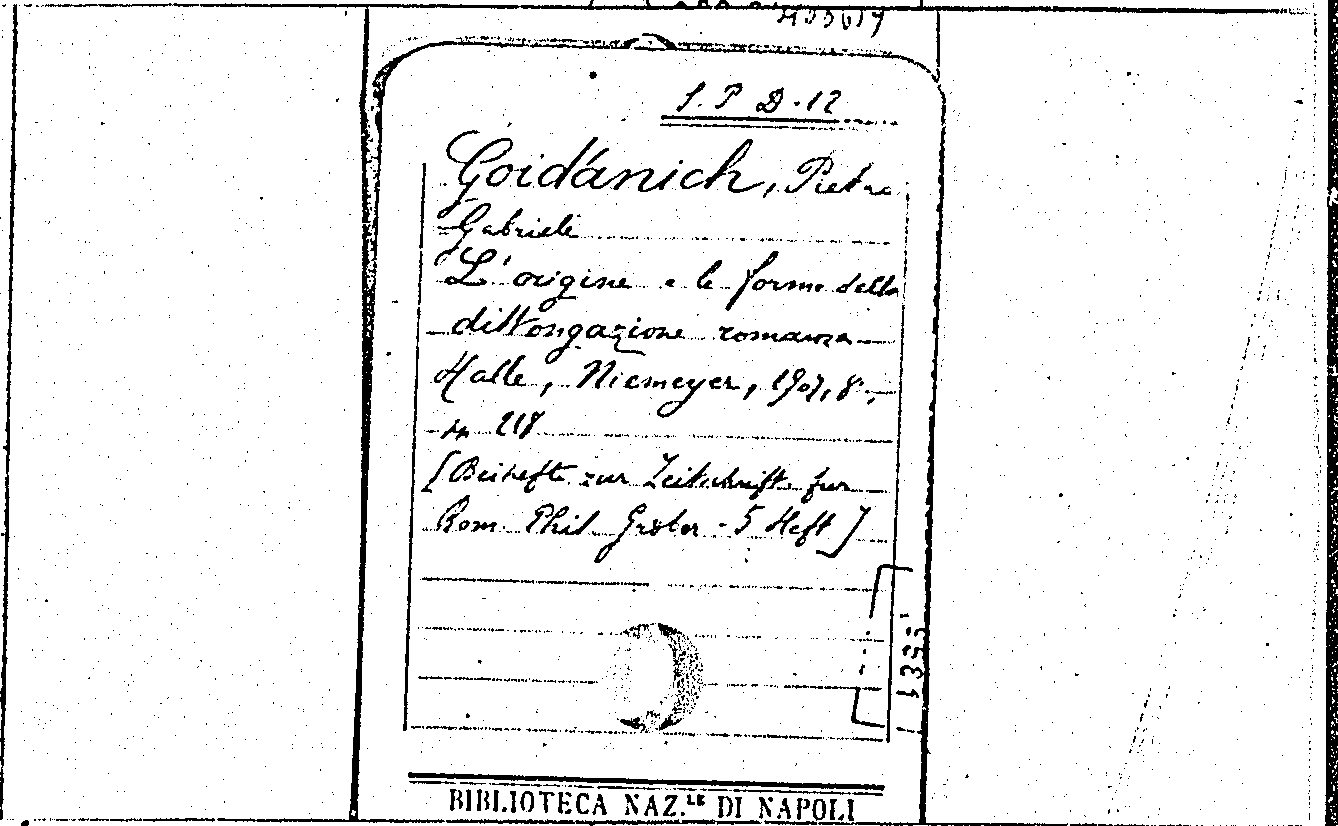 S. P D-12
Goidánich, Pietro
Gabriele
L'origine e le forme della
dittongazione romanza
Halle, Niemeyer, 1907, 8°,
pp 218
[Beihefte zur Zeitschrift fur
Rom. Phil Gröber - 5 Heft]
BIBLIOTECA NAZ.LE DI NAPOLI